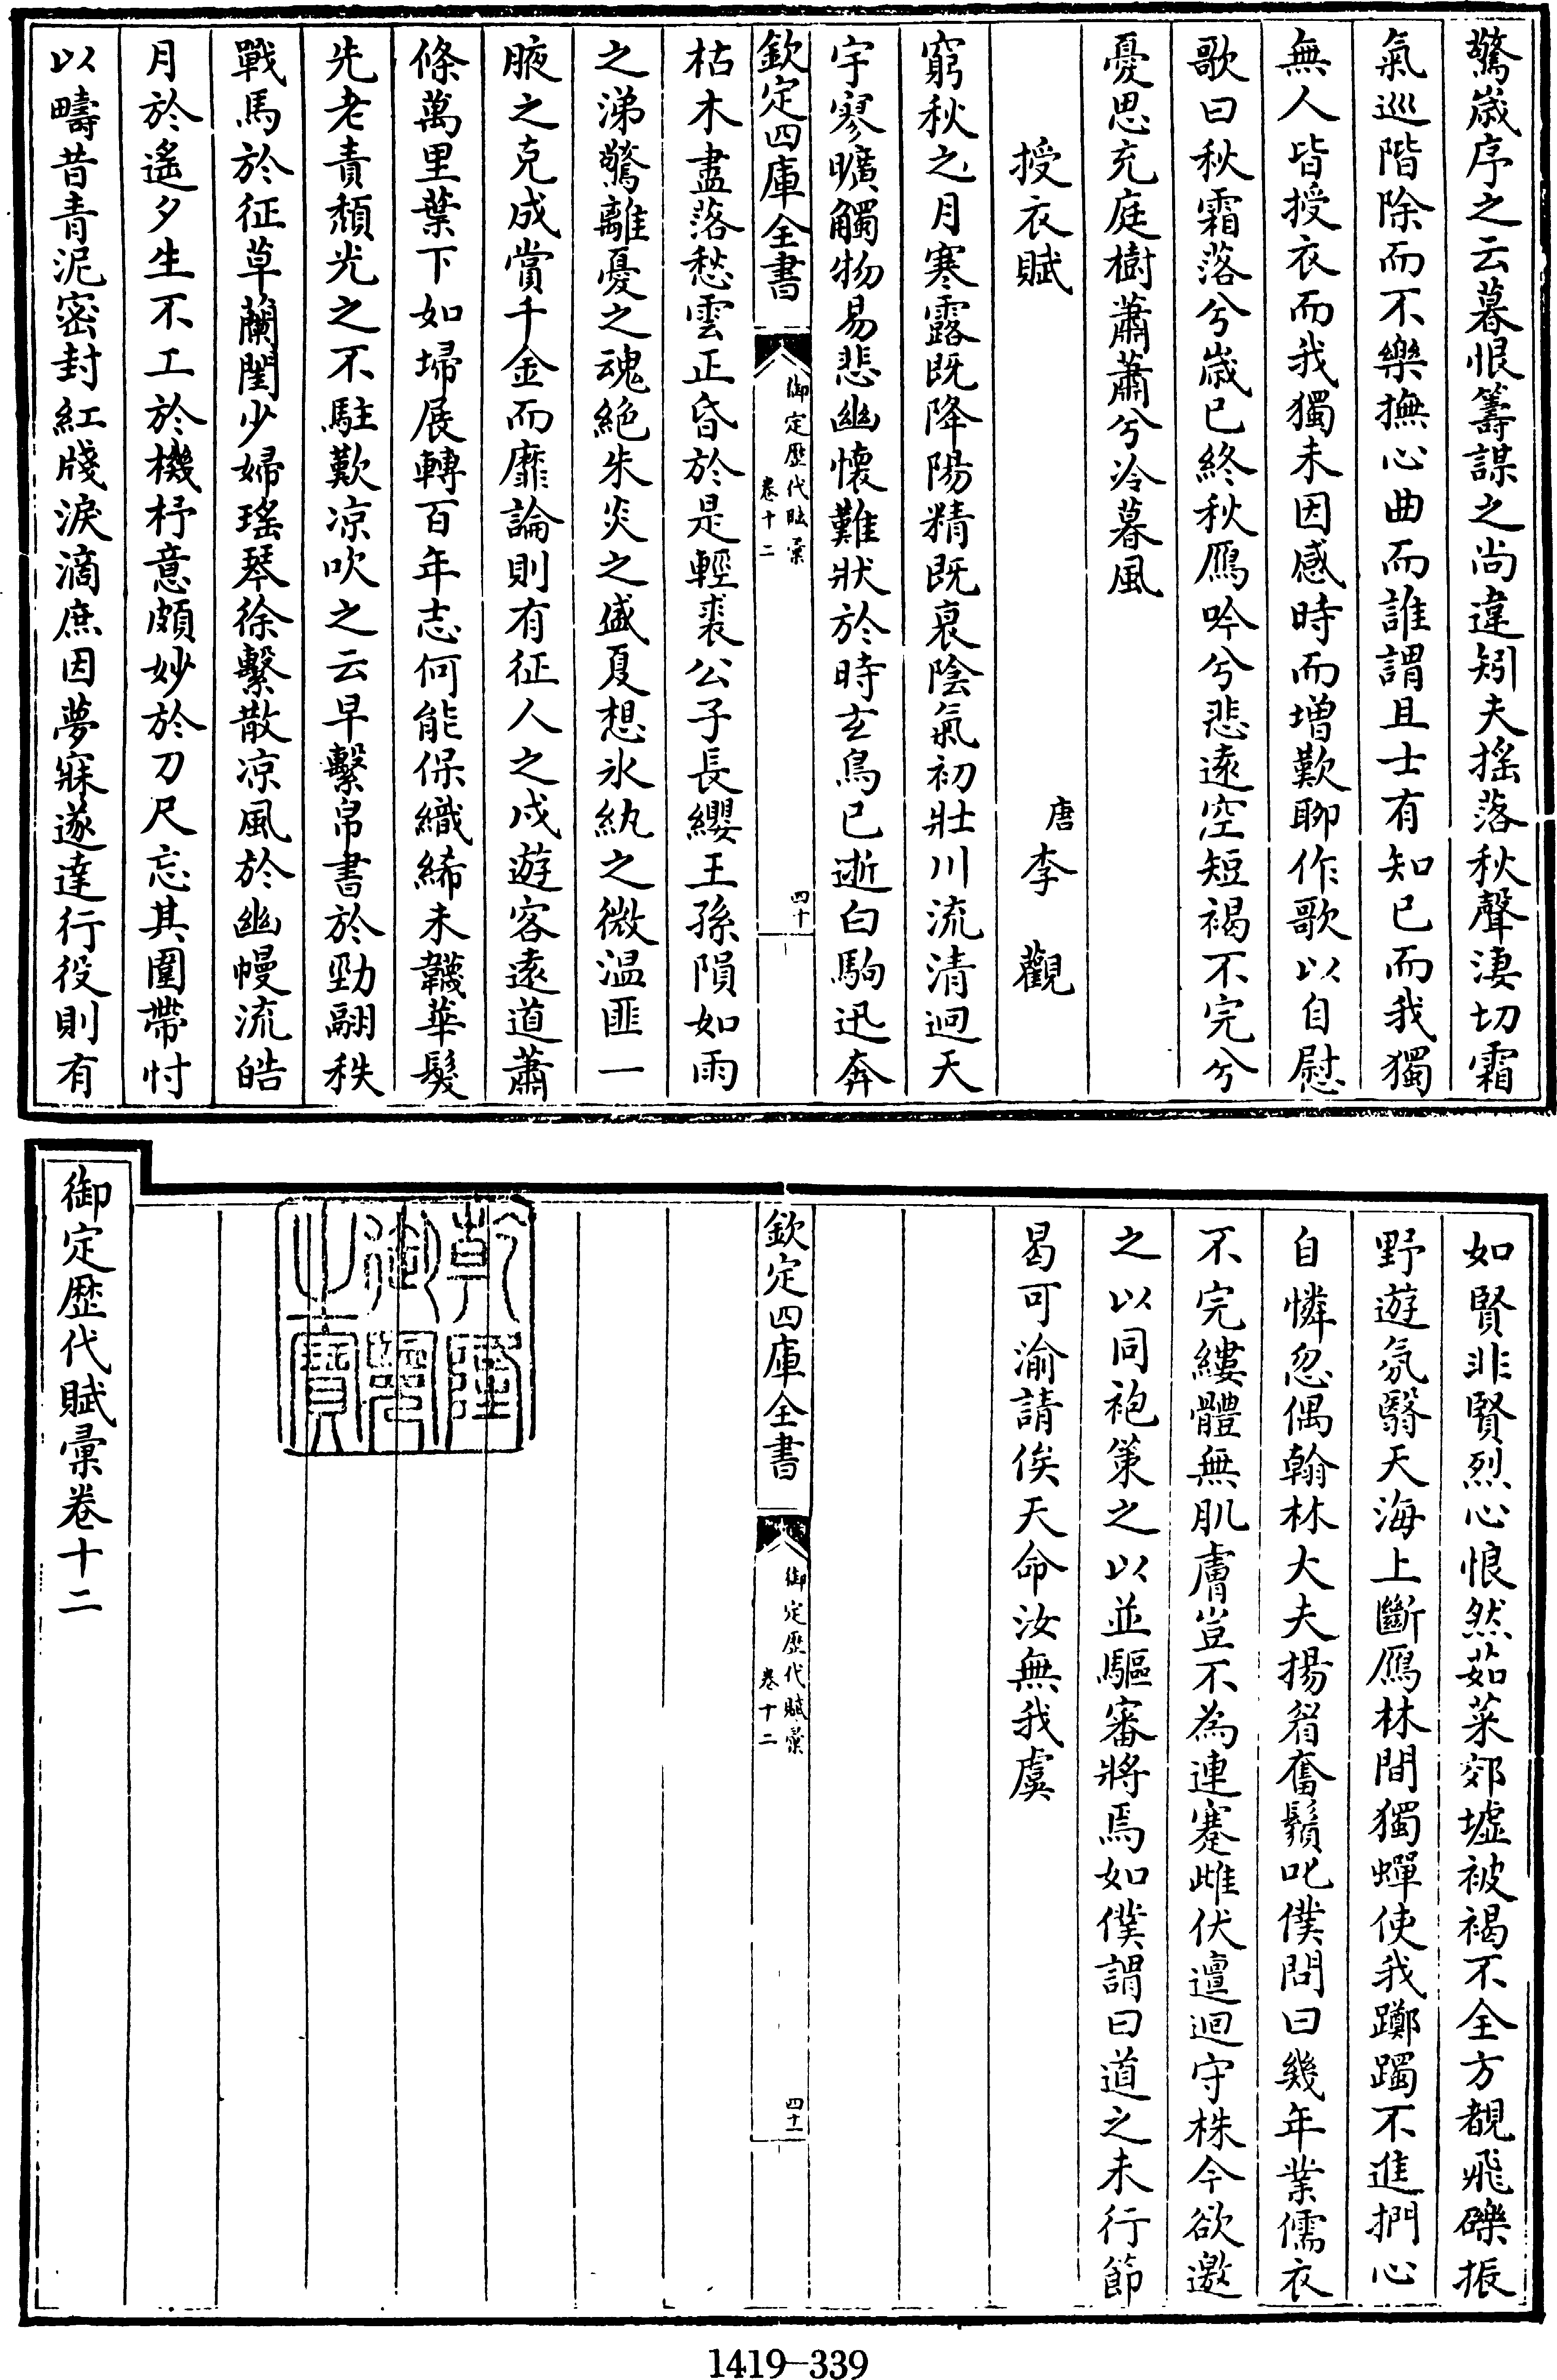 驚嵗序之云暮恨籌謀之尚違矧夫揺落秋聲淒切霜
氣巡階除而不樂撫心曲而誰謂且士有知已而我獨
無人皆授衣而我獨未因感時而增歎聊作歌以自慰
歌曰秋霜落兮嵗已終秋鴈吟兮悲遠空短褐不完兮
憂思充庭樹蕭蕭兮冷暮風
授衣賦
唐李觀
窮秋之月寒露既降陽精既衰陰氣初壯川流清迥天
宇寥曠觸物易悲幽懷難狀於時玄鳥已逝白駒迅奔
欽定四庫全書
御定歷代賦彙
卷十二
四十
枯木盡落愁雲正昏於是輕裘公子長纓王孫隕如雨
之涕驚離憂之魂絶朱炎之盛夏想氷紈之微温匪一
腋之克成賞千金而靡論則有征人之戍遊客遠道蕭
條萬里葉下如埽展轉百年志何能保織絺未韤華髮
先老責頽光之不駐歎凉吹之云早繫帛書於勁翮秩
戰馬於征草蘭閨少婦瑤琴徐繫散凉風於幽幔流皓
月於遙夕生不工於機杼意頗妙於刀尺忘其圍帶忖
以疇昔青泥密封紅牋淚滴庶因夢寐遂達行役則有
如賢非賢烈心悢然茹菜郊墟被褐不全方覩飛礫振
野遊氛翳天海上斷鴈林間獨蟬使我躑躅不進捫心
自憐忽偶翰林大夫揚眉奮鬚叱僕問曰幾年業儒衣
不完縷體無肌膚豈不為連蹇雌伏邅迴守株今欲邀
之以同袍策之以並驅審將焉如僕謂曰道之未行節
曷可渝請俟天命汝無我虞
欽定四庫全書
御定歷代賦彙
卷十二
四十一
乾隆御覽之寳
御定歷代賦彙卷十二
1419-339